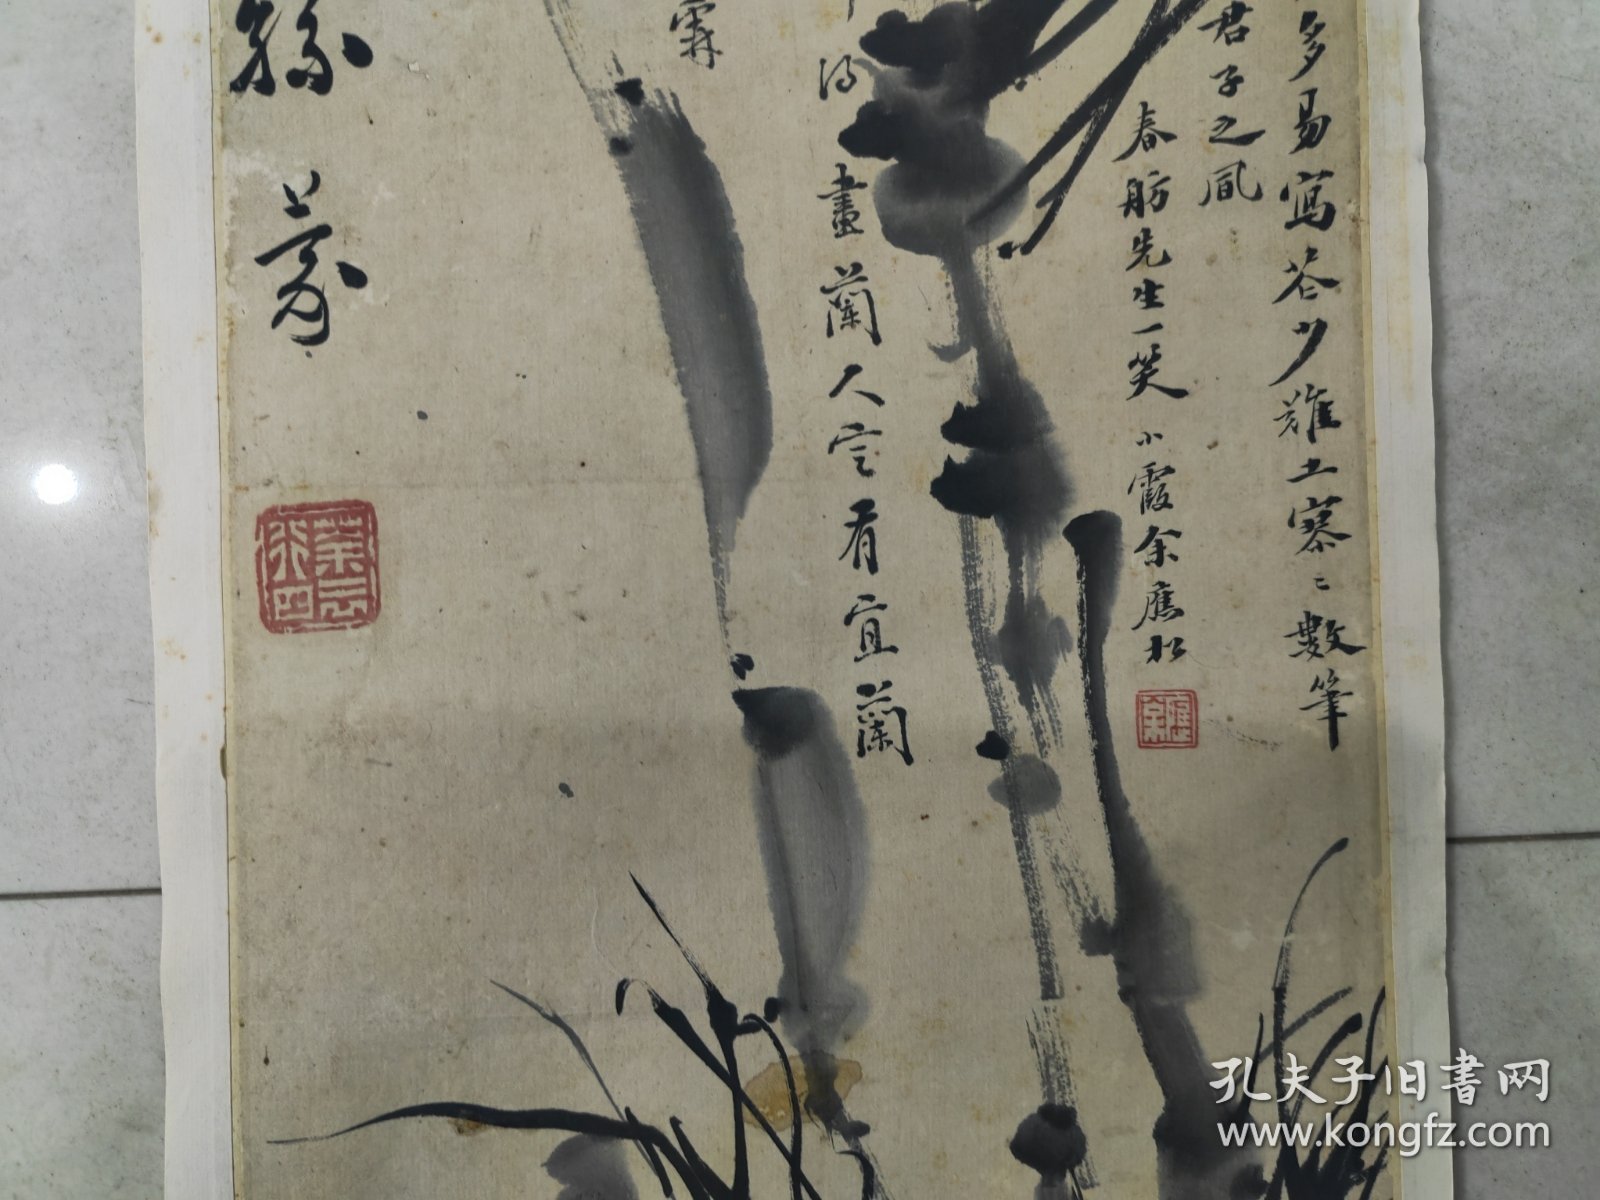 多易寫花少難土寥〻數筆
君子之風
春舫先生一笑 小霞余應松
得畫蘭人定看宜蘭
霖
孔夫子旧书网
www.kongfz.com